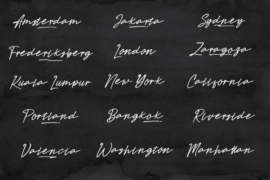 Amsterdam Jakarta Sydney
Frederiksberg London Zaragoza
Kuala Lumpur New York California
Portland Bangkok Riverside
Valencia Washington Manhattan